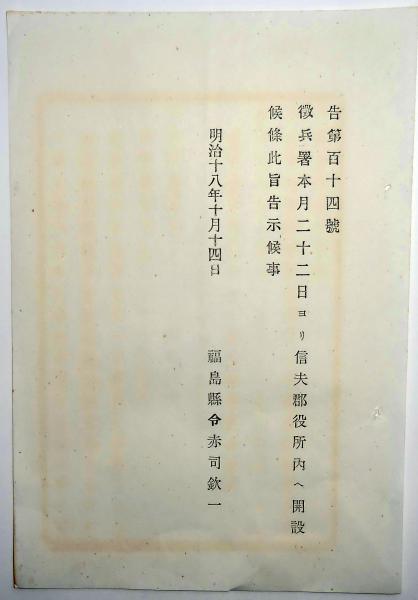 告第百十四號
徵兵署本月二十二日ヨリ信夫郡役所內ヘ開設
候條此旨告示候事
明治十八年十月十四日
福島縣令赤司欽一